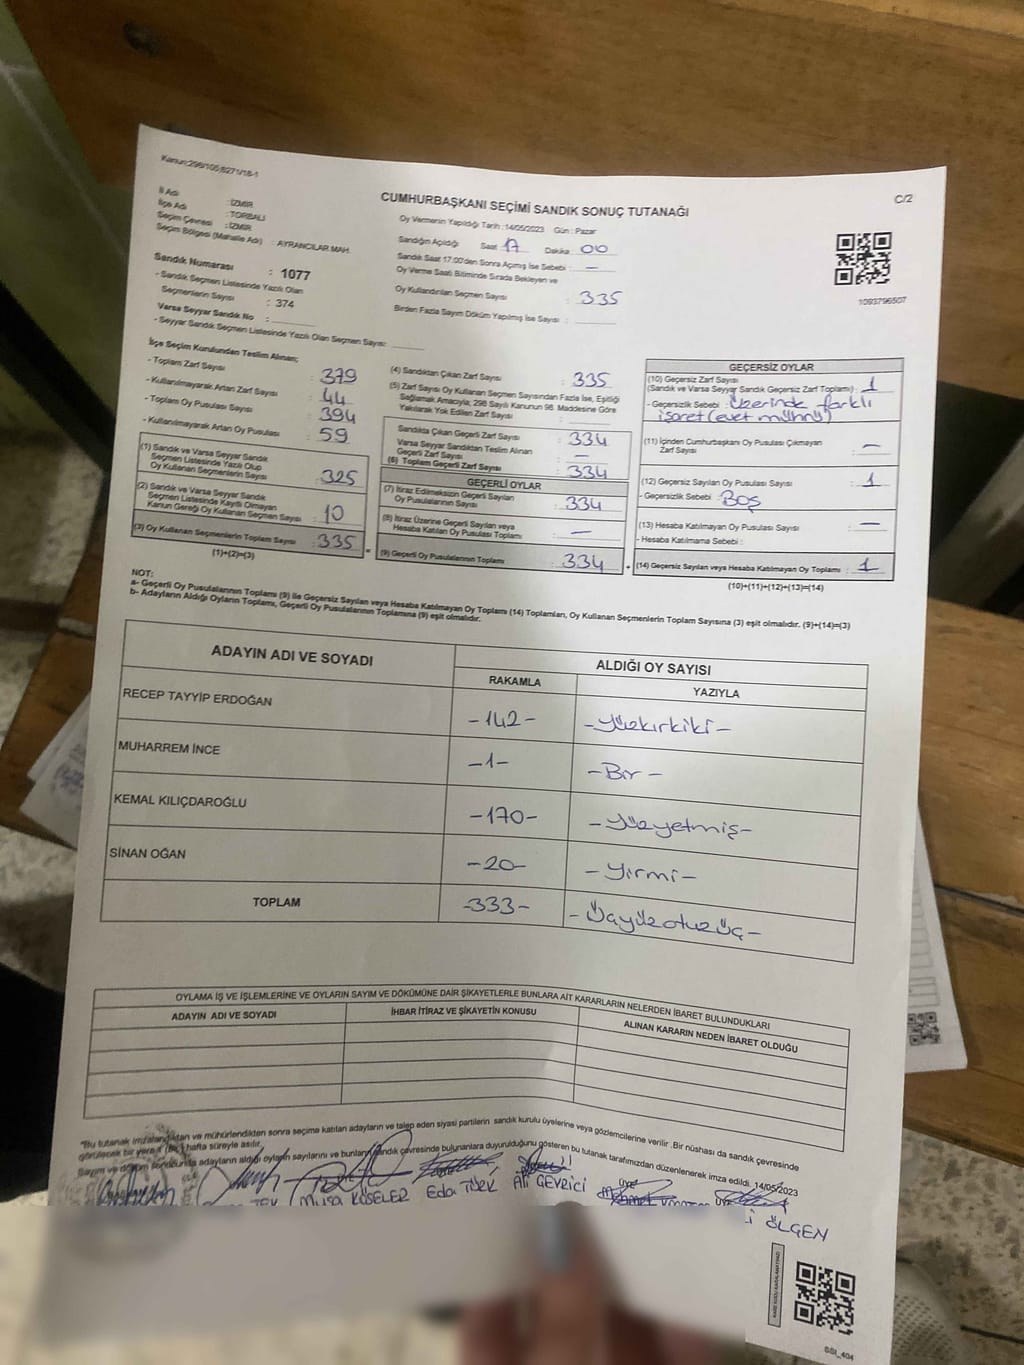 Kanun:298/105,6271/18-1
C/2
CUMHURBAŞKANI SEÇİMİ SANDIK SONUÇ TUTANAĞI
İl Adı : İZMİR
İlçe Adı : TORBALI
Seçim Çevresi : İZMİR
Seçim Bölgesi (Mahalle Adı) : AYRANCILAR MAH.
Sandık Numarası : 1077
- Sandık Seçmen Listesinde Yazılı Olan
Seçmenlerin Sayısı : 374
Varsa Seyyar Sandık No :
- Seyyar Sandık Seçmen Listesinde Yazılı Olan Seçmen Sayısı:
Oy Vermenin Yapıldığı Tarih :14/05/2023 Gün : Pazar
Sandığın Açıldığı Saat 17 Dakika 00
Sandık Saat 17:00'den Sonra Açılmış İse Sebebi : —
Oy Verme Saati Bitiminde Sırada Bekleyen ve
Oy Kullandırılan Seçmen Sayısı : 335
Birden Fazla Sayım Döküm Yapılmış İse Sayısı :
1093796507
İlçe Seçim Kurulundan Teslim Alınan;
- Toplam Zarf Sayısı : 379
- Kullanılmayarak Artan Zarf Sayısı : 44
- Toplam Oy Pusulası Sayısı : 394
- Kullanılmayarak Artan Oy Pusulası : 59
(1) Sandık ve Varsa Seyyar Sandık
Seçmen Listesinde Yazılı Olup
Oy Kullanan Seçmenlerin Sayısı : 325
(2) Sandık ve Varsa Seyyar Sandık
Seçmen Listesinde Kayıtlı Olmayan
Kanun Gereği Oy Kullanan Seçmen Sayısı : 10
(3) Oy Kullanan Seçmenlerin Toplam Sayısı : 335
(1)+(2)=(3)
(4) Sandıktan Çıkan Zarf Sayısı : 335
(5) Zarf Sayısı Oy Kullanan Seçmen Sayısından Fazla İse, Eşitliği
Sağlamak Amacıyla; 298 Sayılı Kanunun 98. Maddesine Göre
Yakılarak Yok Edilen Zarf Sayısı :
Sandıkta Çıkan Geçerli Zarf Sayısı : 334
Varsa Seyyar Sandıktan Teslim Alınan
Geçerli Zarf Sayısı : —
(6) Toplam Geçerli Zarf Sayısı : 334
GEÇERLİ OYLAR
(7) İtiraz Edilmeksizin Geçerli Sayılan
Oy Pusulalarının Sayısı : 334
(8) İtiraz Üzerine Geçerli Sayılan veya
Hesaba Katılan Oy Pusulası Toplamı : —
(9) Geçerli Oy Pusulalarının Toplamı : 334
GEÇERSİZ OYLAR
(10) Geçersiz Zarf Sayısı
(Sandık ve Varsa Seyyar Sandık Geçersiz Zarf Toplamı) : 1
- Geçersizlik Sebebi : Üzerinde farklı
işaret (evet mührü)
(11) İçinden Cumhurbaşkanı Oy Pusulası Çıkmayan
Zarf Sayısı : —
(12) Geçersiz Sayılan Oy Pusulası Sayısı : 1
- Geçersizlik Sebebi : BOŞ
(13) Hesaba Katılmayan Oy Pusulası Sayısı : —
- Hesaba Katılmama Sebebi :
(14) Geçersiz Sayılan veya Hesaba Katılmayan Oy Toplamı : 1
(10)+(11)+(12)+(13)=(14)
NOT:
a- Geçerli Oy Pusulalarının Toplamı (9) ile Geçersiz Sayılan veya Hesaba Katılmayan Oy Toplamı (14) Toplamları, Oy Kullanan Seçmenlerin Toplam Sayısına (3) eşit olmalıdır. (9)+(14)=(3)
b- Adayların Aldığı Oyların Toplamı, Geçerli Oy Pusulalarının Toplamına (9) eşit olmalıdır.
ADAYIN ADI VE SOYADI
ALDIĞI OY SAYISI
RAKAMLA YAZIYLA
RECEP TAYYİP ERDOĞAN -142- -Yüzkırkiki-
MUHARREM İNCE -1- -Bir-
KEMAL KILIÇDAROĞLU -170- -Yüzyetmiş-
SİNAN OĞAN -20- -Yirmi-
TOPLAM -333- -Üçyüzotuzüç-
OYLAMA İŞ VE İŞLEMLERİNE VE OYLARIN SAYIM VE DÖKÜMÜNE DAİR ŞİKAYETLERLE BUNLARA AİT KARARLARIN NELERDEN İBARET BULUNDUKLARI
ADAYIN ADI VE SOYADI İHBAR İTİRAZ VE ŞİKAYETİN KONUSU ALINAN KARARIN NEDEN İBARET OLDUĞU
"Bu tutanak imzalandıktan ve mühürlendikten sonra seçime katılan adayların ve talep eden siyasi partilerin sandık kurulu üyelerine veya gözlemcilerine verilir .Bir nüshası da sandık çevresinde
görülecek bir yere bir hafta süreyle asılır.
Sayım ve döküm sonucunda adayların aldığı oyların sayılarını ve bunların sandık çevresinde bulunanlara duyurulduğunu gösteren bu tutanak tarafımızdan düzenlenerek imza edildi. 14/05/2023
üye
üye
Musa KÖSELER Eda TÜRK Ali GEVRİCİ
ÖLGEN
SSI_404